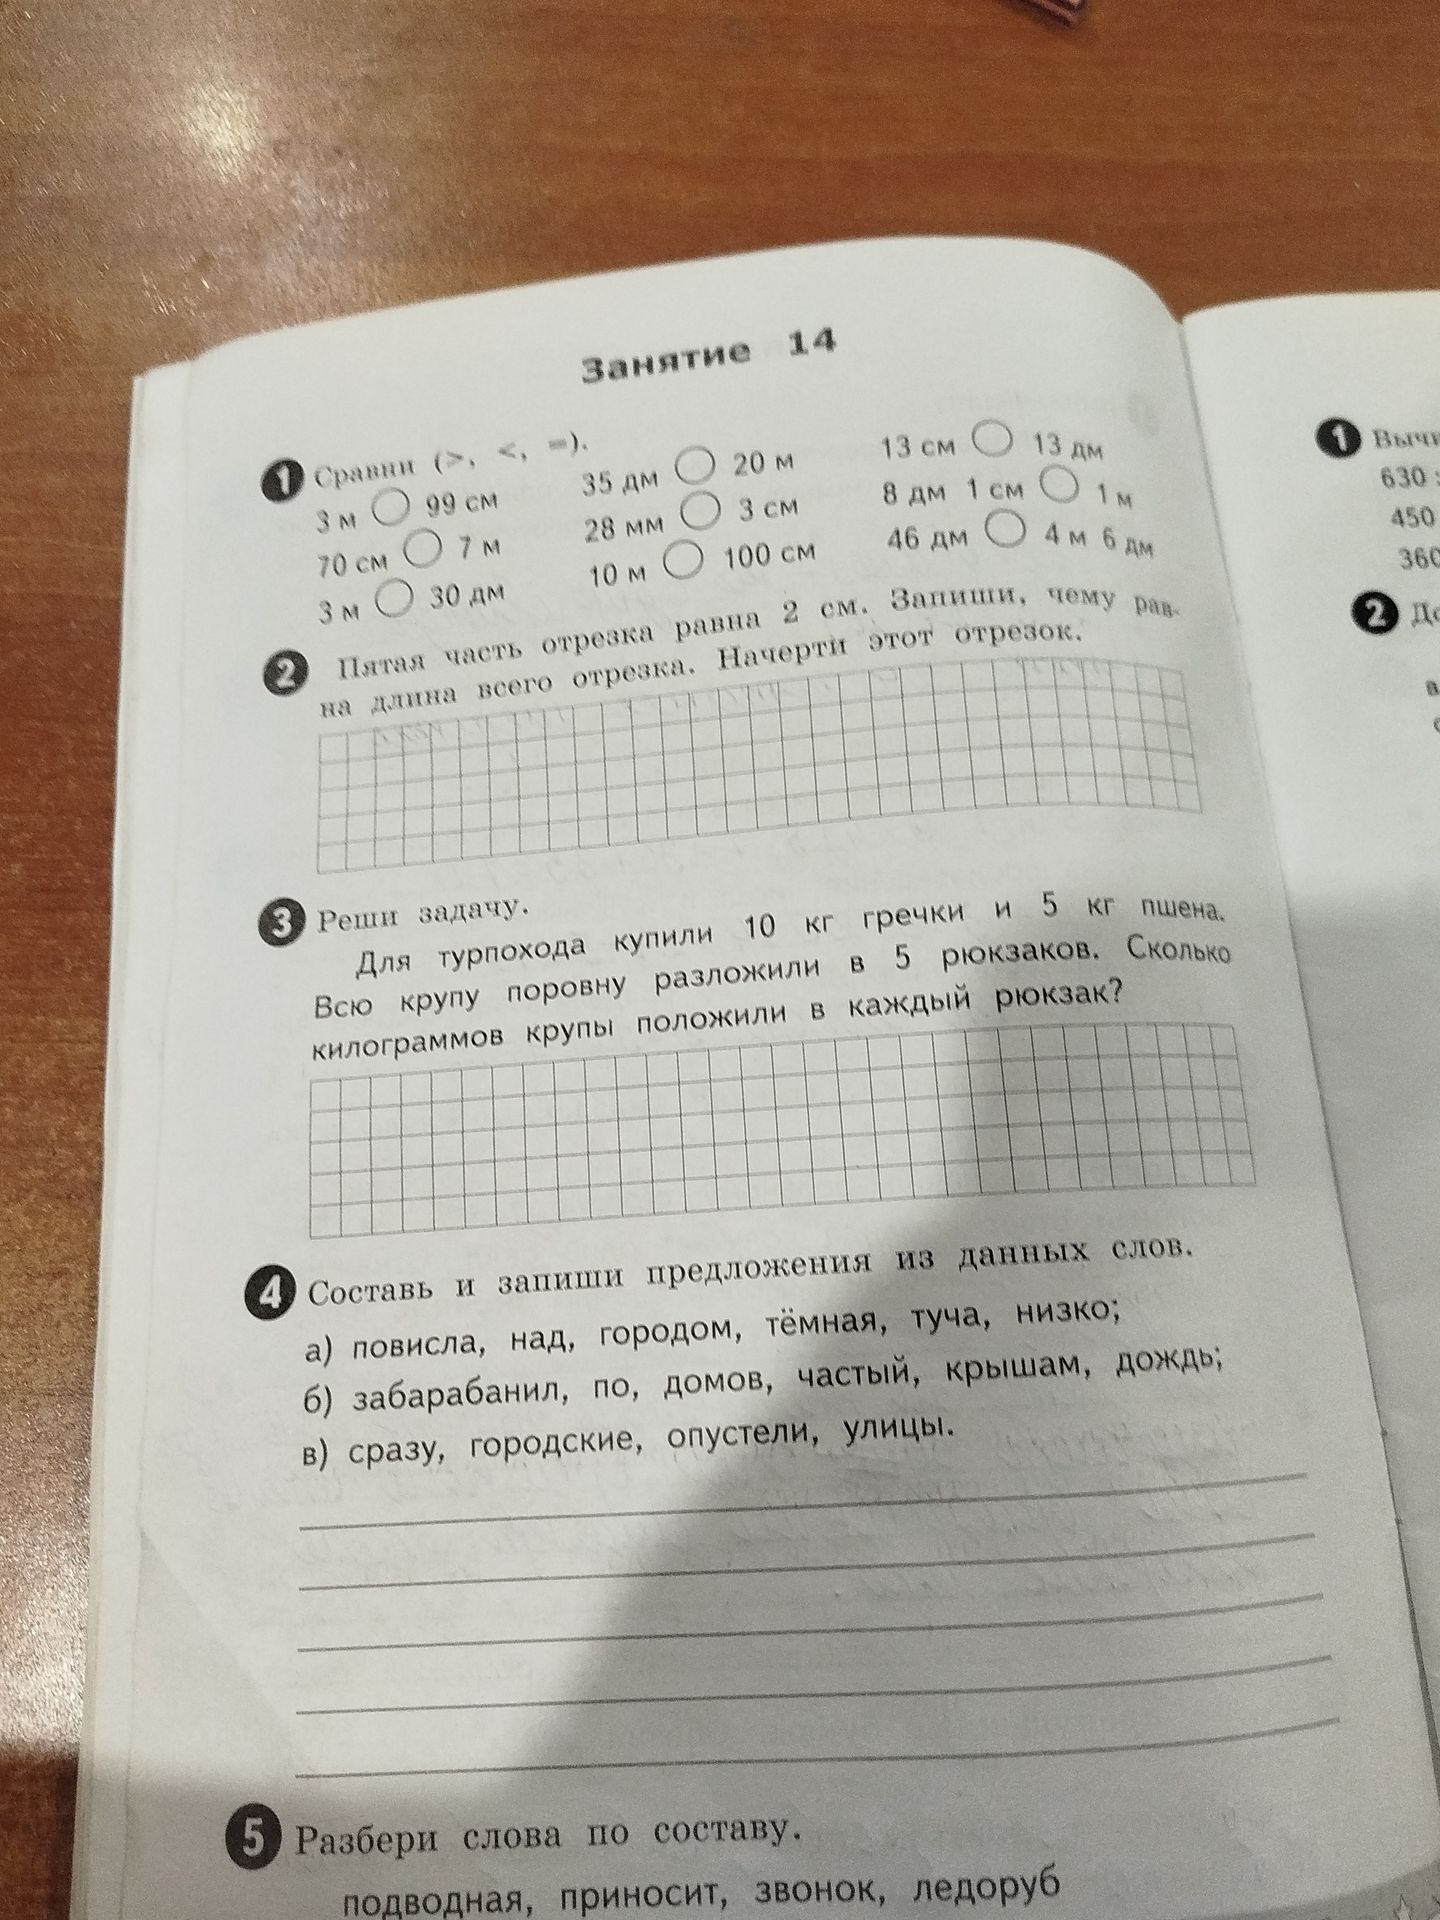 Занятие 14
1 Сравни (>, <, =).
3 м 99 см 35 дм 20 м 13 см 13 дм
70 см 7 м 28 мм 3 см 8 дм 1 см 1 м
3 м 30 дм 10 м 100 см 46 дм 4 м 6 дм
2 Пятая часть отрезка равна 2 см. Запиши, чему рав-
на длина всего отрезка. Начерти этот отрезок.
3 Реши задачу.
Для турпохода купили 10 кг гречки и 5 кг пшена.
Всю крупу поровну разложили в 5 рюкзаков. Сколько
килограммов крупы положили в каждый рюкзак?
4 Составь и запиши предложения из данных слов.
а) повисла, над, городом, тёмная, туча, низко;
б) забарабанил, по, домов, частый, крышам, дождь;
в) сразу, городские, опустели, улицы.
5 Разбери слова по составу.
подводная, приносит, звонок, ледоруб
1
630
450
360
2